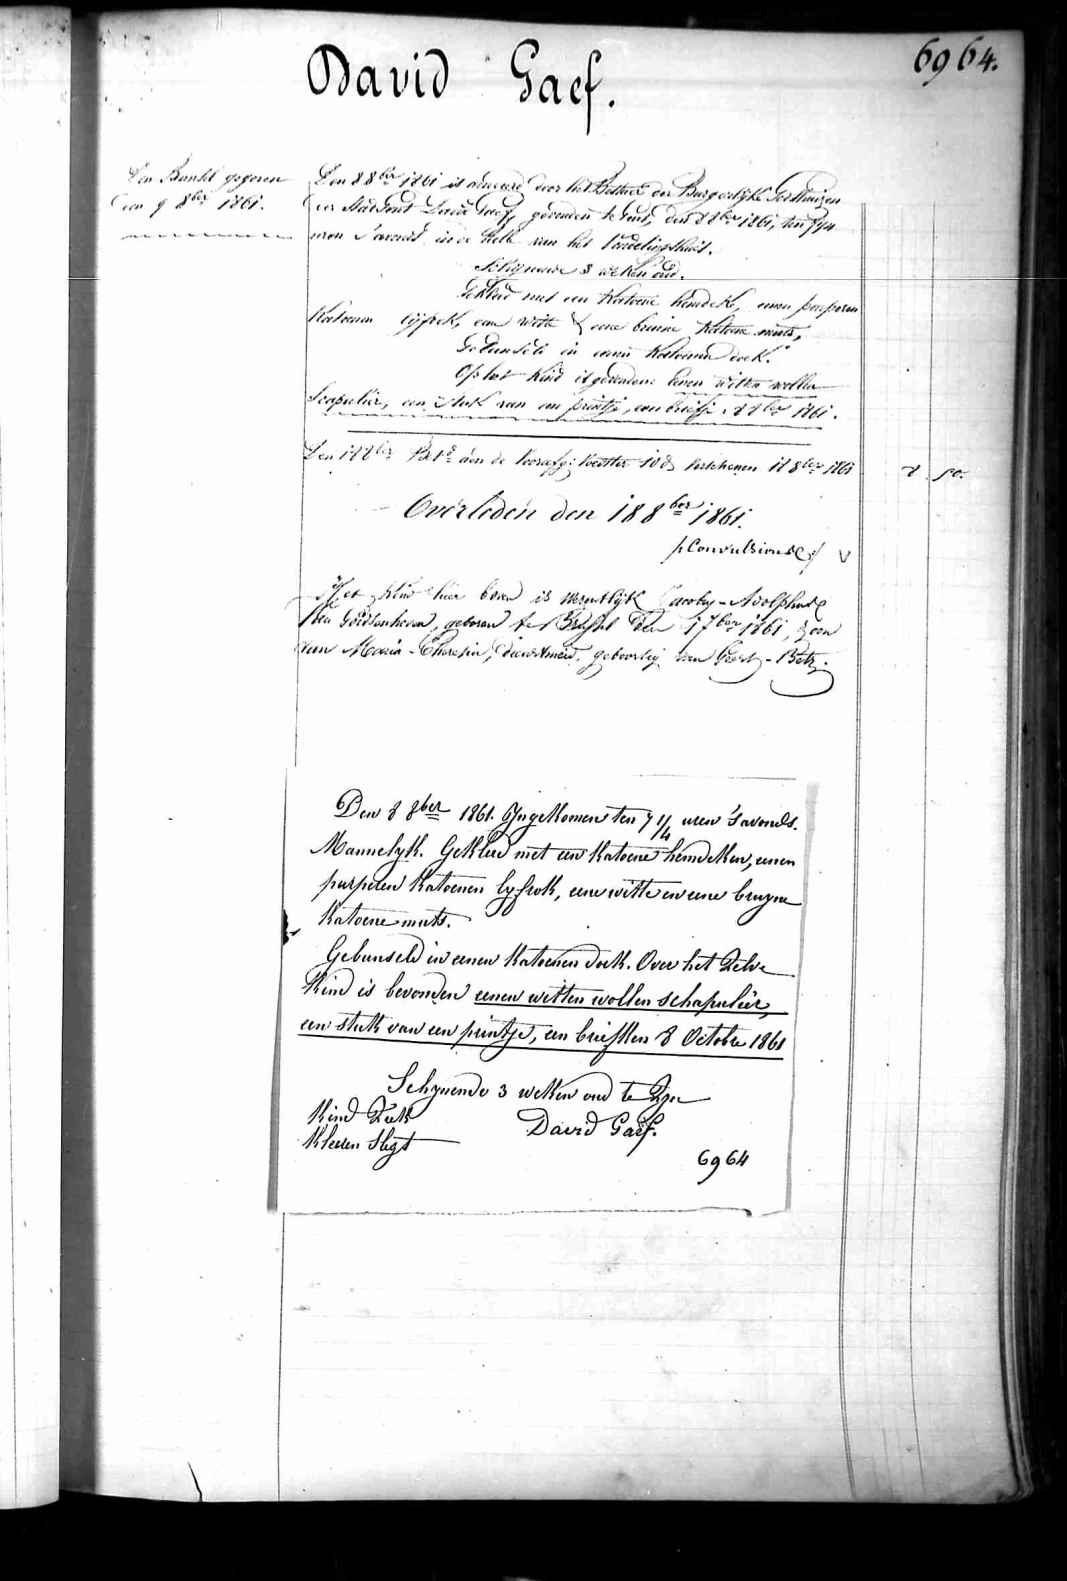 6964.
David Gaef.
Den
gegeven
den 9 8ber 1861.
Den 8 8ber 1861 is door het Bestuur der Burgerlijke Godshuizen
der Stad Gent David Gaef, gevonden te Gent, den 8 8ber 1861, ten 7 1/4
uren 's avonds in de van het Vondelingshuis.
Schijnende 3 weken oud.
Gekleed met een Katoene hemdeke, eenen purperen
Katoenen lijfrok, eene witte & eene bruine Katoene muts,
Gebunseld in eenen Katoenen doek.
Op het Kind is gevonden: eenen witten wollen
Scapulier, een stuk van een printje, een briefje: 8 8ber 1861.
Den 8ber aan de 8ber 1861
Overleden den 18 8ber 1861.
/:Convulsions:/
Het Kind hier boven is wezentlijk Jacoby-Adolphus
geboren te Brussel den 1 7ber 1861, zoon
van Maria-Theresia, dienstmeid, geboortig van
Den 8 8ber 1861. Ingekomen ten 7 1/4 uren 's avonds.
Mannelyk. Gekleed met een Katoene hemdeken, eenen
purperen Katoenen lyfrok, eene witte en eene bruyne
Katoene muts.
Gebunseld in eenen Katoenen doek. Over het Zelve
Kind is bevonden eenen witten wollen schapulier,
een stuk van een printje, een briefken 8 Octobre 1861
Schynende 3 weken oud te Zyn
Kind Ziek
David Gaef.
Kleeren Slegt
6964